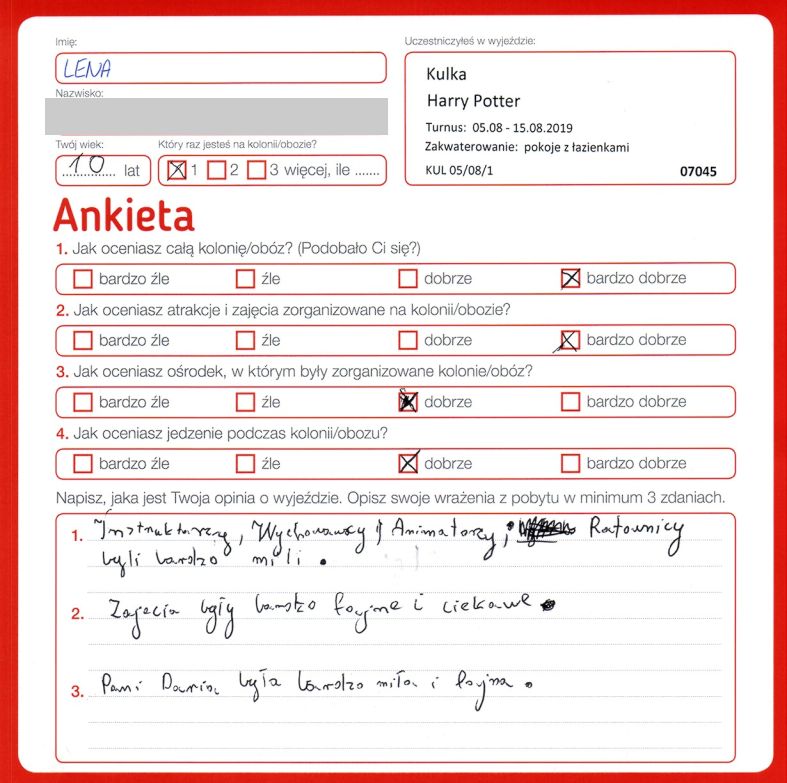 Imię:
LENA
Nazwisko:
Twój wiek:
10 lat
Który raz jesteś na kolonii/obozie?
1 2 3 więcej, ile .......
Uczestniczyłeś w wyjeździe:
Kulka
Harry Potter
Turnus: 05.08 - 15.08.2019
Zakwaterowanie: pokoje z łazienkami
KUL 05/08/1 07045
Ankieta
1. Jak oceniasz całą kolonię/obóz? (Podobało Ci się?)
bardzo źle źle dobrze bardzo dobrze
2. Jak oceniasz atrakcje i zajęcia zorganizowane na kolonii/obozie?
bardzo źle źle dobrze bardzo dobrze
3. Jak oceniasz ośrodek, w którym były zorganizowane kolonie/obóz?
bardzo źle źle dobrze bardzo dobrze
4. Jak oceniasz jedzenie podczas kolonii/obozu?
bardzo źle źle dobrze bardzo dobrze
Napisz, jaka jest Twoja opinia o wyjeździe. Opisz swoje wrażenia z pobytu w minimum 3 zdaniach.
1. Instruktorzy, Wychowawcy, Animatorzy, Ratownicy
byli bardzo mili.
2. Zajęcia były bardzo fajne i ciekawe.
3. Pani Daria była bardzo miła i fajna.